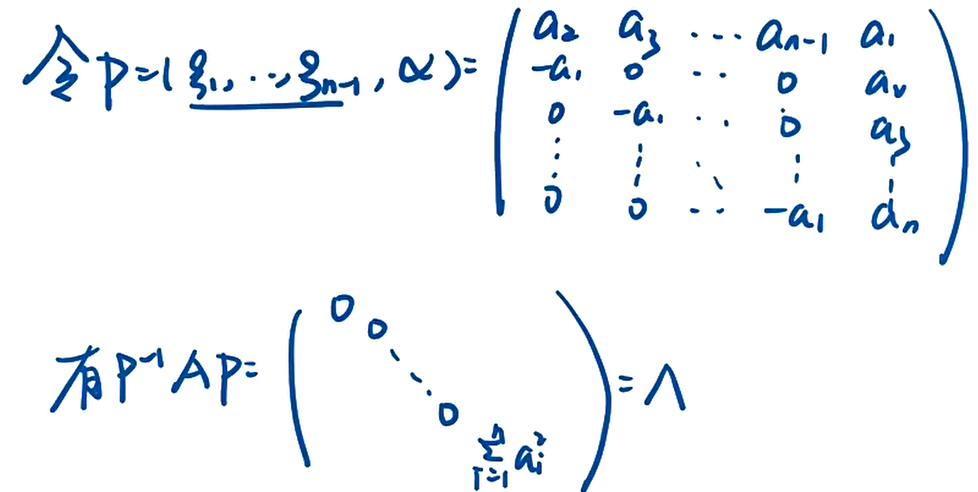 令 P=(ξ₁, ⋯, ξₙ₋₁, α)= ( a₂ a₃ ⋯ aₙ₋₁ a₁
-a₁ 0 ⋯ 0 a₂
0 -a₁ ⋯ 0 a₃
⋮ ⋮ ⋱ ⋮ ⋮
0 0 ⋯ -a₁ aₙ )
有 P⁻¹AP= ( 0 0 ⋱ 0 ∑ᵢ₌₁ⁿ aᵢ² ) = Λ